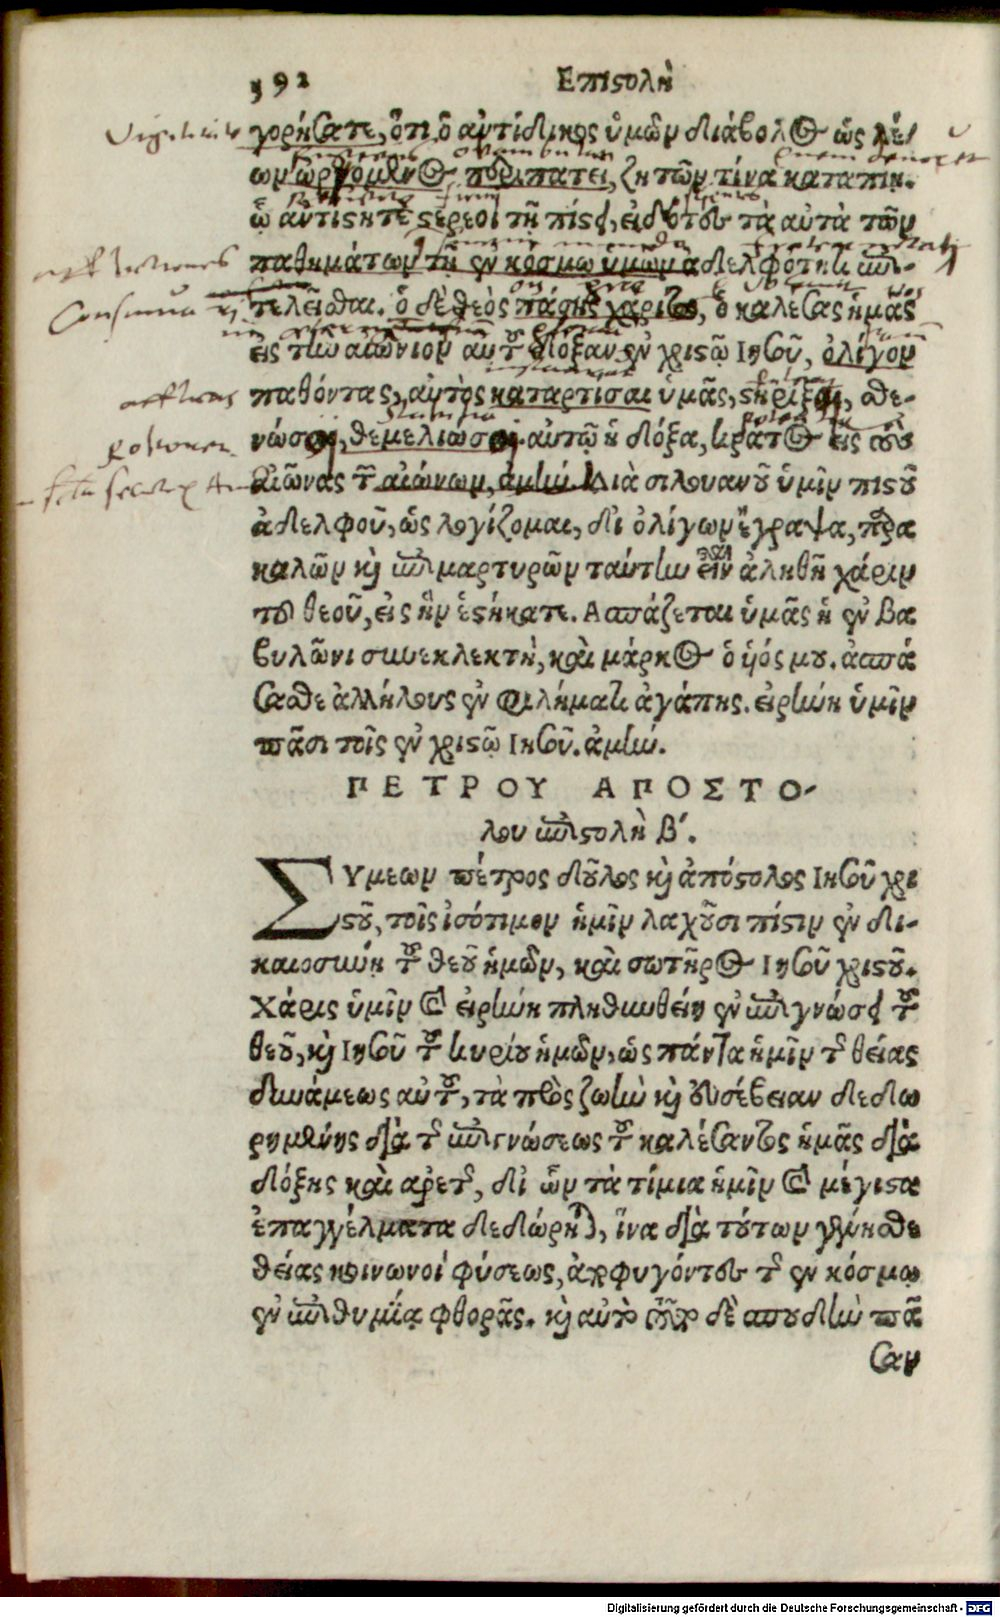 392 Επιστολὴ
γορήσατε, ὅτι ὁ ἀντίδικος ὑμῶν διάβολος ὡς λέ-
ων ὠρυόμενος περιπατεῖ, ζητῶν τίνα καταπίῃ.
ᾧ ἀντίστητε στερεοὶ τῇ πίστει, εἰδότες τὰ αὐτὰ τῶν
παθημάτων τῇ ἐν κόσμω ὑμῶν ἀδελφότητι ἐπι-
τελεῖσθαι. ὁ δὲ θεὸς πάσης χάριτος, ὁ καλέσας ἡμᾶς
εἰς τὴν αἰώνιον αὐτοῦ δόξαν ἐν χριστῷ Ιησοῦ, ὀλίγον
παθόντας, αὐτὸς καταρτίσαι ὑμᾶς, στηρίξαι, σθε-
νώσαι, θεμελιώσαι. αὐτῷ ἡ δόξα, κράτος εἰς τοὺς
αἰῶνας τῶν αἰώνων, ἀμήν. Διὰ σιλουανοῦ ὑμῖν πιστοῦ
ἀδελφοῦ, ὡς λογίζομαι, δι ὀλίγων ἔγραψα, παρα
καλῶν καὶ ἐπιμαρτυρῶν ταύτην εἶναι ἀληθῆ χάριν
τοῦ θεοῦ, εἰς ἣν ἑστήκατε. Ασπάζεται ὑμᾶς ἡ ἐν βα
βυλῶνι συνεκλεκτὴ, καὶ μάρκος ὁ ὑιός μου. ἀσπά
σασθε ἀλλήλους ἐν φιλήματι ἀγάπης. εἰρήνη ὑμῖν
πᾶσι τοῖς ἐν χριστῷ Ιησοῦ. ἀμήν.
ΠΕΤΡΟΥ ΑΠΟΣΤΟ-
λου ἐπιστολὴ β΄.
ΣΥμεων πέτρος δοῦλος καὶ ἀπόστολος Ιησοῦ χρι
στοῦ, τοῖς ἰσότιμον ἡμῖν λαχοῦσι πίστιν ἐν δι-
καιοσύνῃ τοῦ θεοῦ ἡμῶν, καὶ σωτῆρος Ιησοῦ χριστοῦ.
Χάρις ὑμῖν καὶ εἰρήνη πληθυνθείη ἐν ἐπιγνώσει τοῦ
θεοῦ, καὶ Ιησοῦ τοῦ κυρίου ἡμῶν, ὡς πάντα ἡμῖν τῆς θείας
δυνάμεως αὐτοῦ, τὰ πρὸς ζωὴν καὶ εὐσέβειαν δεδω
ρημένης διὰ τῆς ἐπιγνώσεως τοῦ καλέσαντος ἡμᾶς διὰ
δόξης καὶ αρετῆς, δι ὧν τὰ τίμια ἡμῖν καὶ μέγιστα
ἐπαγγέλματα δεδώρηται, ἵνα διὰ τούτων γένησθε
θείας κοινωνοὶ φύσεως, ἀποφυγόντες τῆς ἐν κόσμῳ
ἐν ἐπιθυμίᾳ φθορᾶς. καὶ αὐτὸ τοῦτο δὲ σπουδὴν πᾶ
σαν
Digitalisierung gefördert durch die Deutsche Forschungsgemeinschaft - DFG